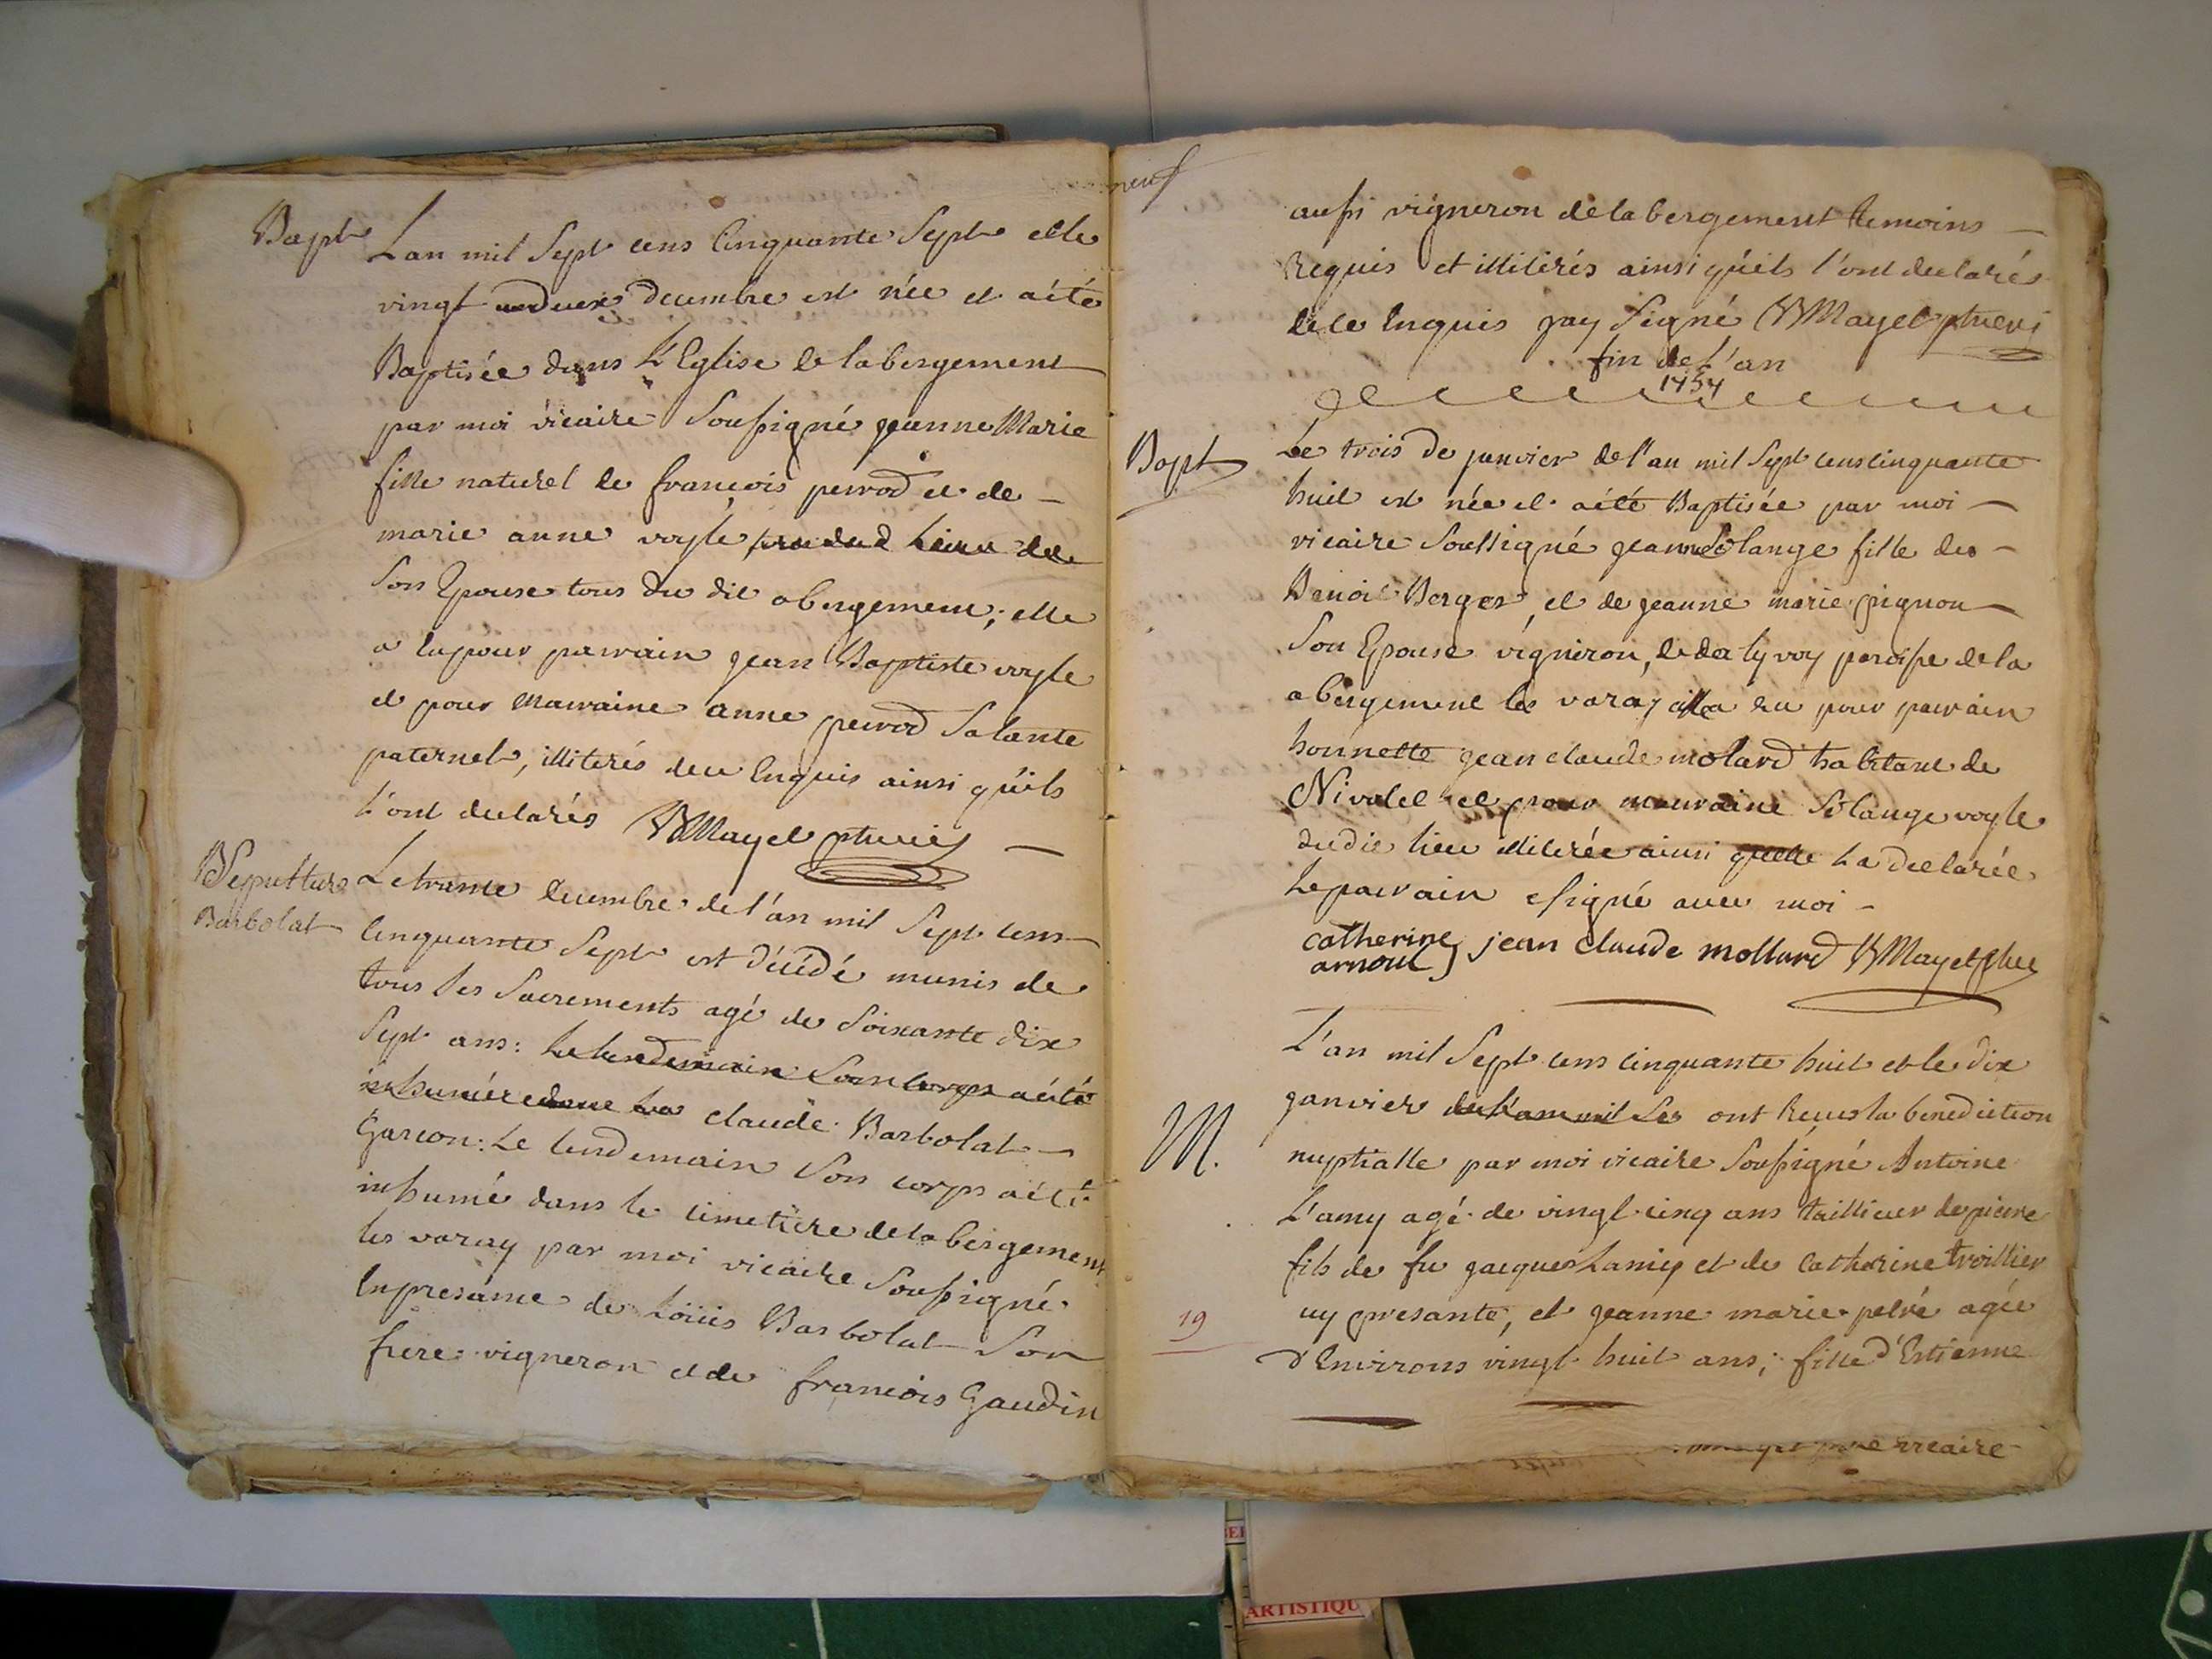 Bapt
L'an mil Sept cens Cinquante Sept et le
vingt decembre est née et aété
Baptisée dans L'Eglise de labergement
par moi vicaire Soussigné jeanne Marie
fille naturel de françois perrod et de
marie anne voyle
Son Epouse tous du dit abergement; elle
a eu pour parrain jean Baptiste voyle
et pour marraine anne perrod Sa tante
paternel, illiterés de ce Enquis ainsi qu'ils
l'ont declarés Mayet ptre vic
Sepulture
Barbolat
Le trante decembre de l'an mil Sept cens
Cinquante Sept est décédé munis de
tous les Sacrements agé de Soixante dix
Sept ans: Le lendemain Son corps aété
inhumé claude Barbolat
Garcon: Le lendemain Son corps aété
inhumé dans le cimetière de labergement
les varay par moi vicaire Soussigné
En presance de Loüis Barbolat Son
frere vigneron et de francois Gaudin
neuf
aussi vigneron de labergement temoins
Requis et illitirés ainsi qu'ils l'ont declarés
de ce Enquis jay Signé Mayet ptre vic
fin de l'an
1757
Bapt
Le trois de janvier de l'an mil Sept cens cinquante
huit est née et aété Baptisée par moi
vicaire Soussigné jeanne Solange fille de
Benoit Berger, et de jeanne marie pignon
Son Epouse vigneron, paroisse de la
abergement les varay elle a eu pour parrain
honnette jean claude molard habitant de
Nivolet et pour marraine Solange voyle
dudit lieu illiterée ainsi quelle La declarée
Le parrain Signé avec moi
catherine
arnoul jean claude mollard Mayet ptre
M.
L'an mil Sept cens cinquante huit et le dix
janvier de l'an mil Ses ont Recus la benediction
nuptialle par moi vicaire Soussigné Antoine
L'amy agé de vingt cinq ans taillieur de pierre
fils de fu jacques Lamy et de Catherine troillier
icy presante, et jeanne marie petré agée
19
d'Environs vingt huit ans; fille d'Estienne
vicaire
ARTISTIQU